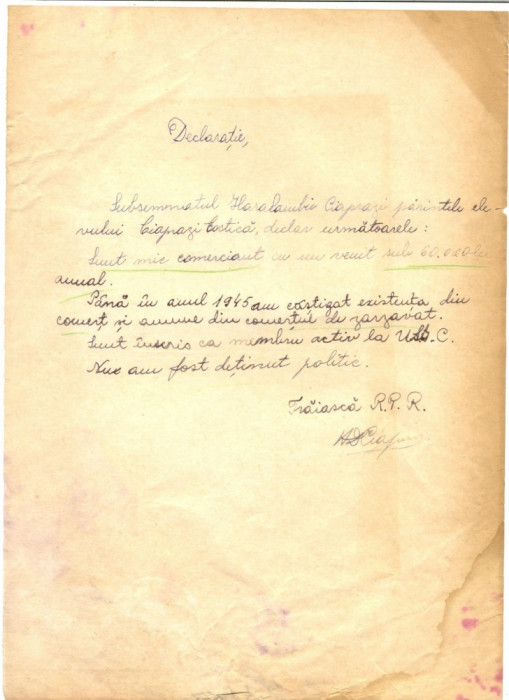 Declarație,
Subsemnatul Haralambie Ciaprazi părintele ele-
vului Ciaprazi Costică, declar următoarele:
Sunt mic comerciant cu un venit sub 60.000 lei
anual.
Până în anul 1945 am câștigat existența din
comerț și anume din comerțul de zarzavat.
Sunt înscris ca membru activ la
Nu am fost deținut politic.
Trăiască R.P.R.